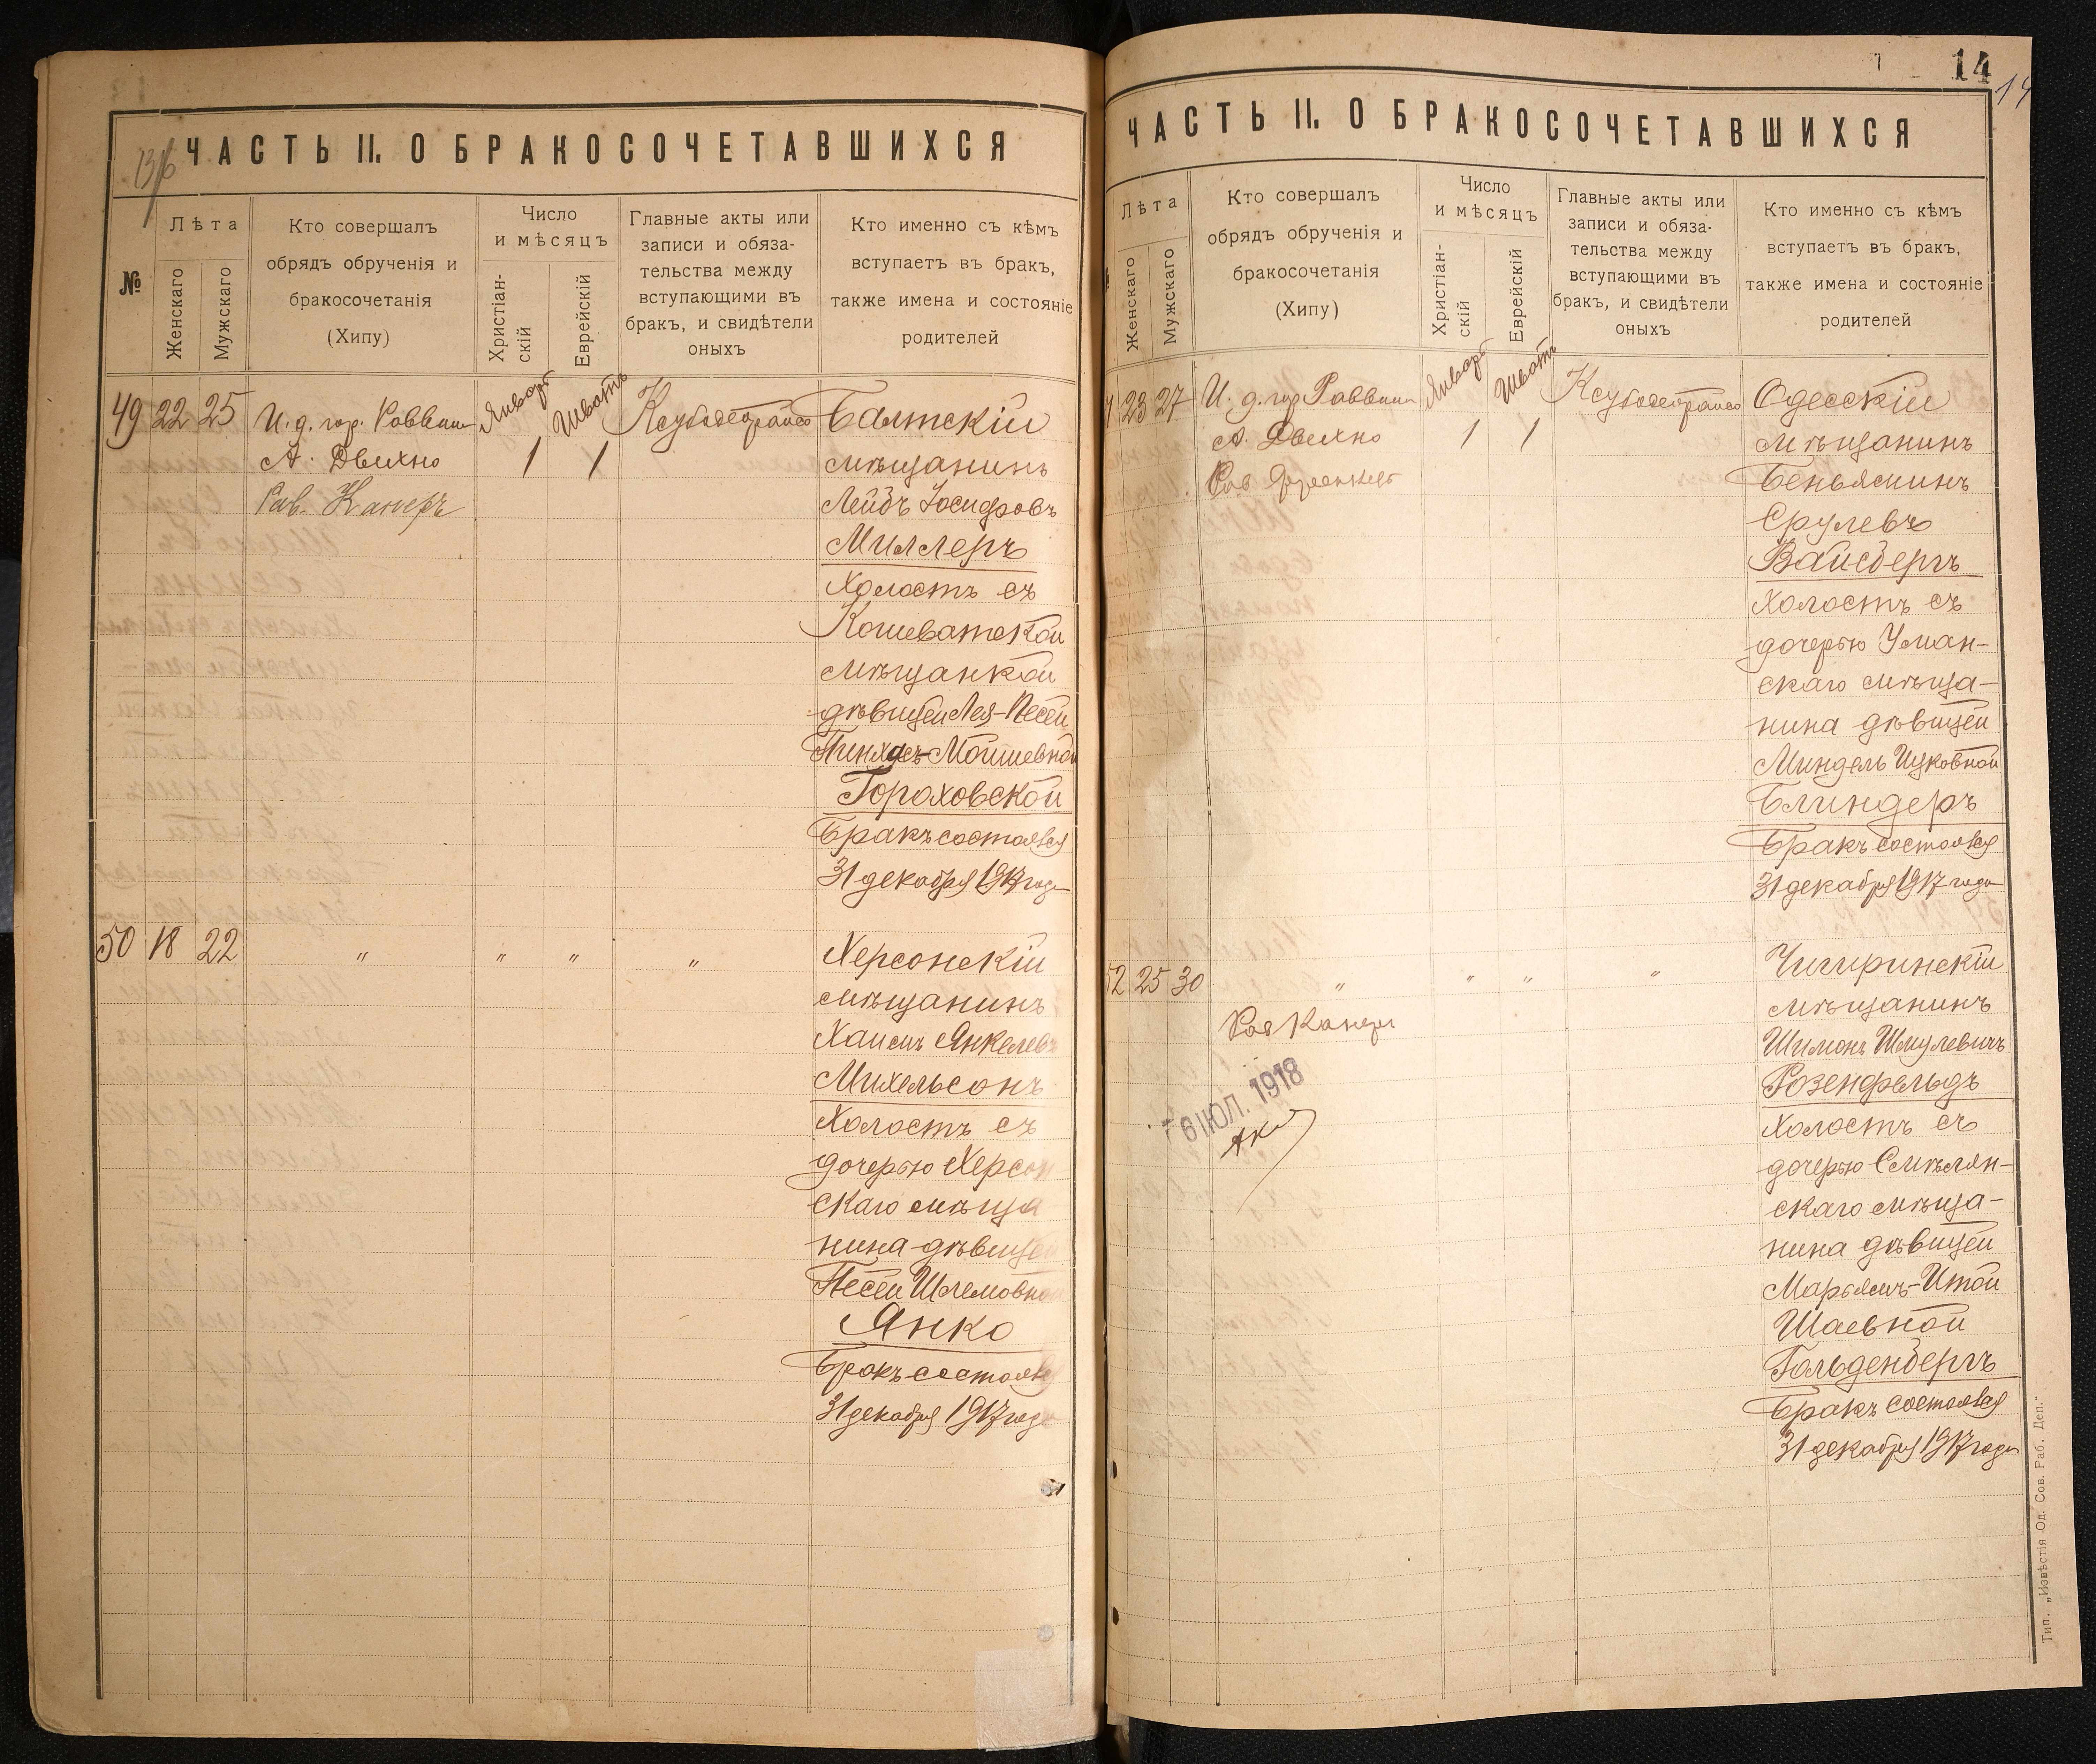 13/6
ЧАСТЬ II. О БРАКОСОЧЕТАВШИХСЯ
№
Лѣта
Женскаго
Мужскаго
Кто совершалъ
обрядъ обрученія и
бракосочетанія
(Хипу)
Число
и мѣсяцъ
Христіан-
скій
Еврейскій
Главные акты или
записи и обяза-
тельства между
вступающими въ
бракъ, и свидѣтели
оныхъ
Кто именно съ кѣмъ
вступаетъ въ бракъ,
также имена и состояніе
родителей
49 22 25
И. д. гор. Раввина
А. Двихно
Рав. Канеръ
Январь
1
Шватъ
1
Балтскій
мѣщанинъ
Лейбъ Іосифовъ
Миллеръ
холостъ съ
Кошеватской
мѣщанкой
дѣвицей Лея-Песей
Пинхасъ-Мошевной
Гороховской
Бракъ состоялся
31 декабря 1917 года
50 18 22
" " " "
Херсонскій
мѣщанинъ
Хаимъ Янкелевъ
Михельсонъ
Холостъ съ
дочерью Херсон
скаго мѣща
нина дѣвицей
Песей Шлемовной
Янко
Бракъ состоялся
31 декабря 1917 года
14
14
ЧАСТЬ II. О БРАКОСОЧЕТАВШИХСЯ
Лѣта
Женскаго
Мужскаго
Кто совершалъ
обрядъ обрученія и
бракосочетанія
(Хипу)
Число
и мѣсяцъ
Христіан-
скій
Еврейскій
Главные акты или
записи и обяза-
тельства между
вступающими въ
бракъ, и свидѣтели
оныхъ
Кто именно съ кѣмъ
вступаетъ въ бракъ,
также имена и состояніе
родителей
1 23 27
И. д. гор. Раввина
А. Двихно
Рав
Январь
1
Шватъ
1
Одесскій
мѣщанинъ
Беньяминъ
Срулевъ
Вайсбергъ
холостъ съ
дочерью Уман-
скаго мѣща-
нина дѣвицей
Миндель Ицковной
Блиндеръ
Бракъ состоялся
31 декабря 1917 года
52 25 30
" " " "
Рав Канеръ
6 ІЮЛ. 1918
Чигиринскій
мѣщанинъ
Шимонъ Шмулевичъ
Розенфельдъ
холостъ съ
дочерью Смѣлян-
скаго мѣща-
нина дѣвицей
Марьямъ-Итой
Шаевной
Гольденбергъ
Бракъ состоялся
31 декабря 1917 года
Тип. „Извѣстія Од. Сов. Раб. Деп."